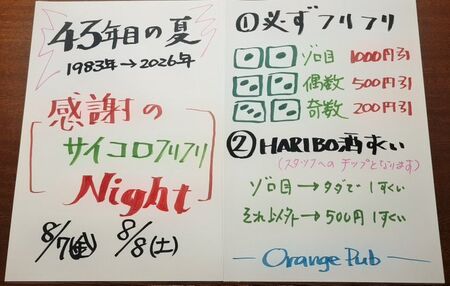 43年目の夏
1983年→2026年
感謝の
サイコロフリフリ
Night
8/7(金) 8/8(土)
①必ずフリフリ
ゾロ目 1000円引
偶数 500円引
奇数 200円引
②HARIBO酒すくい
(スタッフへのチップとなります)
ゾロ目→タダで1すくい
それ以外→500円1すくい
Orange Pub